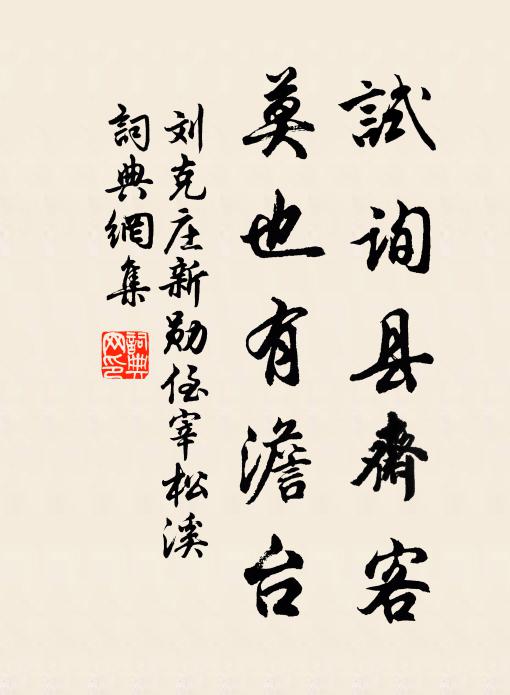 試询县齋客
莫也有澹台
刘克庄新勋侄宰松溪
詞典網集
詞典
网印